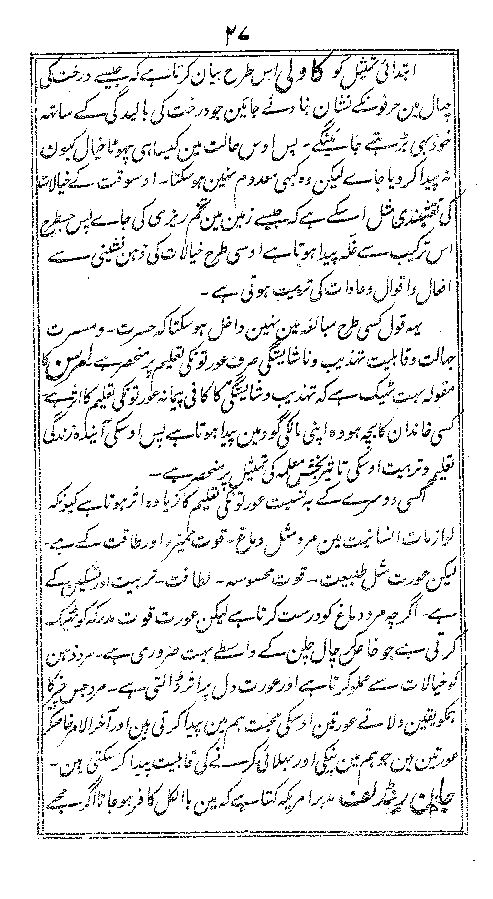 ۳۷
ابتدائی تمثیل کو کاولی اس طرح بیان کرتا ہے کہ جیسے درخت کی
چہال مین حرفونکے نشان بنا دئے جائین جو درخت کی بالیدگی کے ساتہہ
خود بہی بڑہتے جائینگے ۔ پس اوس حالت مین کیسا ہی چہوٹا خیال کیون
نہ پیدا کر دیا جاے لیکن وہ کبہی معدوم نہین ہو سکتا ۔ اوسوقت کے خیالات
کی نقشبندی مثل اسکے ہے کہ جیسے زمین مین تخم ریزی کی جاے پس جسطرح
اس ترکیب سے غلہ پیدا ہوتا ہے اوسی طرح خیالات کی ذہن نشینی سے
افعال و اقوال و عادات کی تربیت ہوتی ہے ۔
یہہ قول کسی طرح مبالغہ مین نہین داخل ہو سکتا کہ حسرت ۔ و مسرت
جہالت و قابلیت تہذیب و ناشایستگی صرف عورتونکی تعلیم پر منحصر ہے امرسن کا
مقولہ بہت ٹہیک ہے کہ تہذیب و شایستگی کا کافی پیمانہ عورتونکی تعلیم کا اثر ہے
کسی خاندان کا بچہ ہو وہ اپنی مانکی گود مین پیدا ہوتا ہے پس اوسکی آیندہ زندگی
تعلیم و تربیت اوسکی تاثیر بخش معلمہ کی تمثیل پر منحصر ہے ۔
کسی دوسرے کے بہ نسبت عورتونکی تعلیم کا زیادہ اثر ہوتا ہے کیونکہ
لوازمات انسانیت مین مرد مثل دماغ ۔ قوت ممیزہ اور طاقت کے ہے ۔
لیکن عورت مثل طبیعت ۔ قوت محسوسہ ۔ لطافت ۔ تربیت اور تسکین کے
ہے ۔ اگرچہ مرد دماغ کو درست کرتا ہے لیکن عورت قوت مدرکہ کو ٹہیک
کرتی ہے جو خاصکر چال چلن کے واسطے بہت ضروری ہے ۔ مرد ذہن
کو خیالات سے مملو کرتا ہے اور عورت دل پر اثر ڈالتی ہے ۔ مرد جس چیز کا
ہمکو یقین دلاتے عورتین اوسکی محبت ہم مین پیدا کرتی ہین اور آخر الامر خاصکر
عورتین ہین جو ہم مین نیکی اور بہلائی کرنے کی قابلیت پیدا کر سکتی ہین ۔
جان رینڈلف مدبر امریکہ کہتا ہے کہ مین بالکل کافر ہو جاتا اگر مجہے